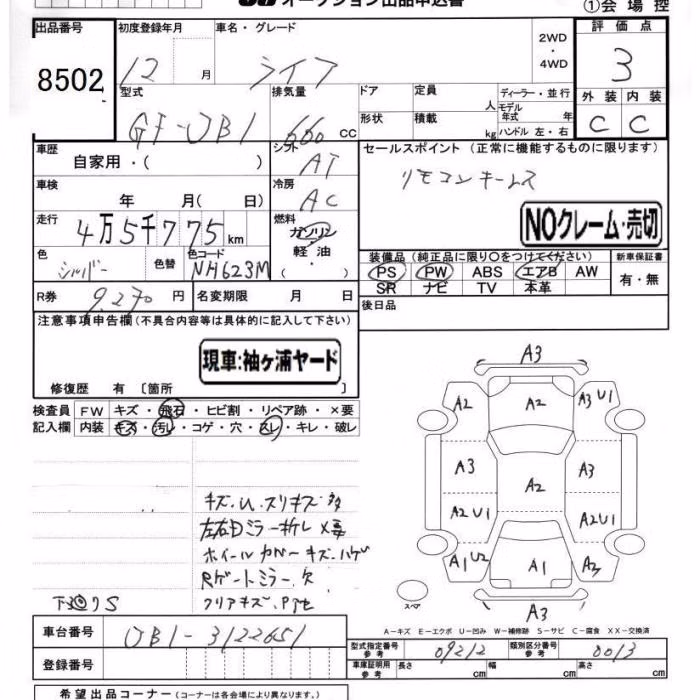 オークション出品申込書
①会場控
出品番号
8502
初度登録年月
12 月
車名・グレード
ライフ
2WD
・
4WD
評価点
3
外装 内装
C C
型式
GF-JB1
排気量
660 CC
ドア
定員
人
ディーラー・並行
モデル年式 年
形状
積載
kg
ハンドル 左・右
車歴
自家用・( )
シフト
AT
セールスポイント (正常に機能するものに限ります)
リモコンキーレス
車検
年 月( 日)
冷房
AC
NOクレーム・売切
走行
4万5千775km
燃料
ガソリン
軽油
( )
色
シルバー
色替
色コード
NH623M
装備品 (純正品に限り○をつけてください)
PS PW ABS エアB AW
SR ナビ TV 本革
新車保証書
有・無
R券
9,270 円
名変期限 月 日
後日品
注意事項申告欄(不具合内容等は具体的に記入して下さい)
現車:袖ヶ浦ヤード
修復歴 有〔箇所 〕
検査員
記入欄
FW キズ・飛石・ヒビ割・リペア跡・×要
内装 キズ・汚レ・コゲ・穴・スレ・キレ・破レ
キズ.U.スリキズ多
左右Dミラー折レ×要
ホイールカバーキズ.ハゲ
Rゲートミラー欠
クリアキズ.
A3
A2 A2 A3 U1
A3 A2 A3
A2 U1 A2U1
A1 U2 A1 A2
A3
スペア
A-キズ E-エクボ U-凹み W-補修跡 S-サビ C-腐食 XX-交換済
車台番号
JB1-3122651
登録番号
型式指定番号
参考
09212
類別区分番号
参考
0013
車庫証明用
参考
長さ cm
幅 cm
高さ cm
希望出品コーナー (コーナーは各会場により異なります。)